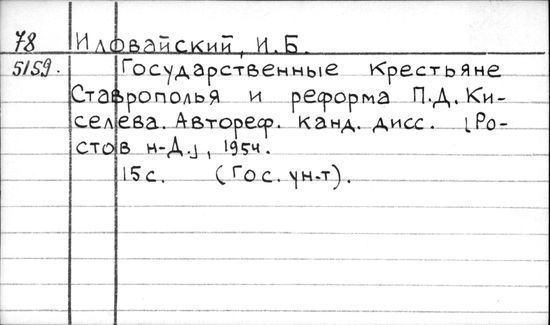 78 Иловайский, И.Б.
5159. Государственные крестьяне
Ставрополья и реформа П.Д. Ки-
селева. Автореф. канд. дисс. [Ро-
стов н-Д.], 1954.
15 с. (Гос. ун-т).